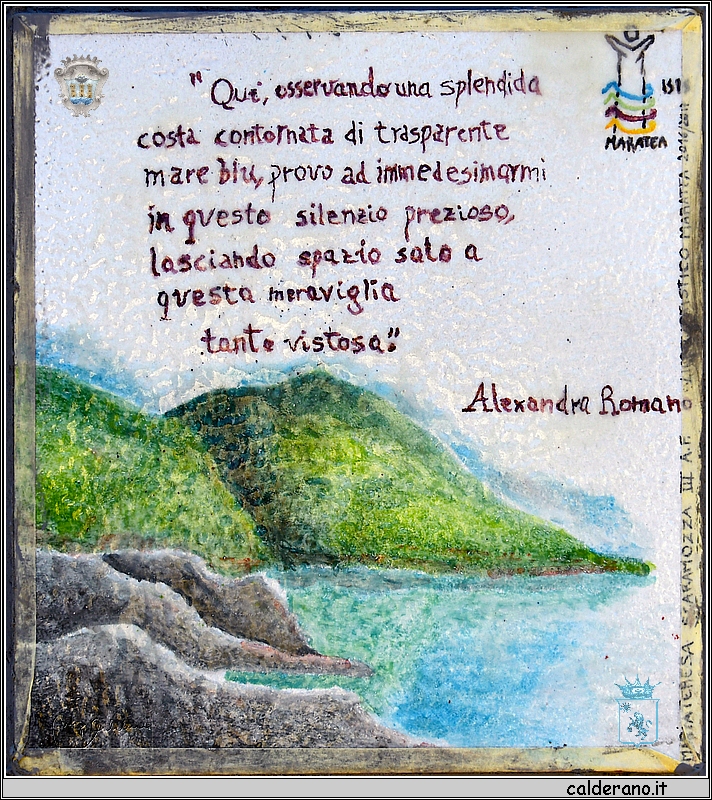 "Qui, osservando una splendida
costa contornata di trasparente
mare blu, provo ad immedesimarmi
in questo silenzio prezioso,
lasciando spazio solo a
questa meraviglia
tante vistosa."
Alexandra Romano
MARATEA
MARIATERESA SCARAMOZZA III A.F. ARTISTICO MARATEA 2016/2017
calderano.it